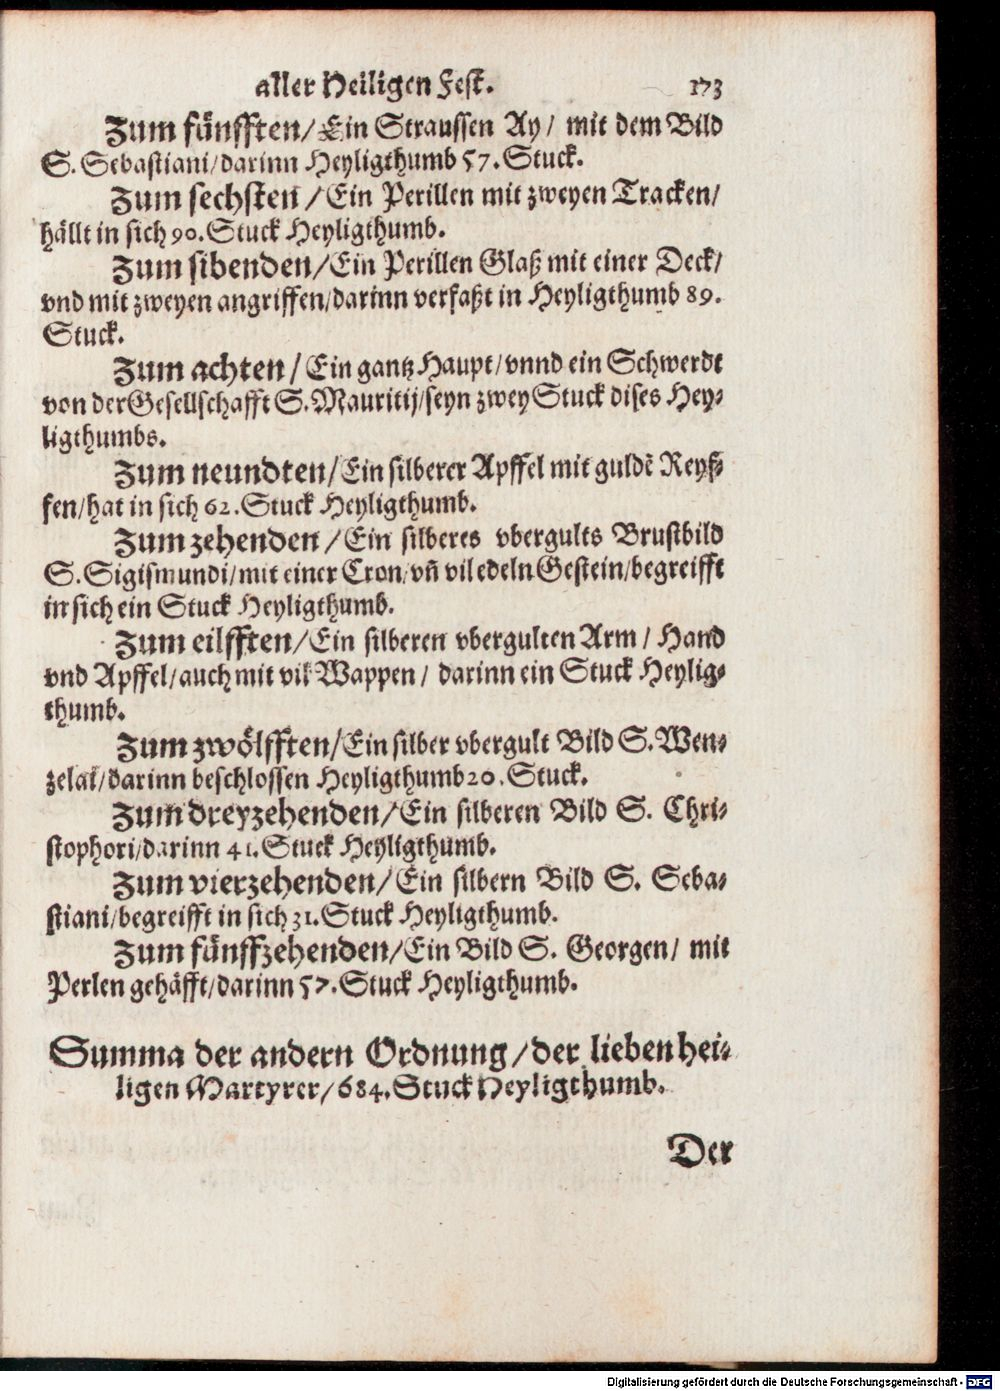 aller Heiligen Fest. 173
Zum fünfften/ Ein Straussen Ay/ mit dem Bild
S. Sebastiani/darinn Heyligthumb 57. Stuck.
Zum sechsten / Ein Perillen mit zweyen Tracken/
hällt in sich 90. Stuck Heyligthumb.
Zum sibenden/Ein Perillen Glaß mit einer Deck/
vnd mit zweyen angriffen/darinn verfaßt in Heyligthumb 89.
Stuck.
Zum achten / Ein gantz Haupt/vnnd ein Schwerdt
von der Gesellschafft S. Mauritij/seyn zwey Stuck dises Hey-
ligthumbs.
Zum neundten/Ein silberer Apffel mit guldẽ Reyf-
fen/hat in sich 62. Stuck Heyligthumb.
Zum zehenden /Ein silberes vbergults Brustbild
S. Sigismundi/mit einer Cron/vñ vil edeln Gestein/begreifft
in sich ein Stuck Heyligthumb.
Zum eilfften/Ein silberen vbergulten Arm / Hand
vnd Apffel/auch mit vil Wappen / darinn ein Stuck Heylig-
thumb.
Zum zwölfften/Ein silber vbergult Bild S. Wen-
zelai/darinn beschlossen Heyligthumb 20. Stuck.
Zum dreyzehenden/Ein silberen Bild S. Chri-
stophori/darinn 41. Stuck Heyligthumb.
Zum vierzehenden/Ein silbern Bild S. Seba-
stiani/begreifft in sich 31. Stuck Heyligthumb.
Zum fünffzehenden/Ein Bild S. Georgen/ mit
Perlen gehäfft/darinn 57. Stuck Heyligthumb.
Summa der andern Ordnung/der lieben hei-
ligen Martyrer/684. Stuck Heyligthumb.
Der
Digitalisierung gefördert durch die Deutsche Forschungsgemeinschaft - DFG